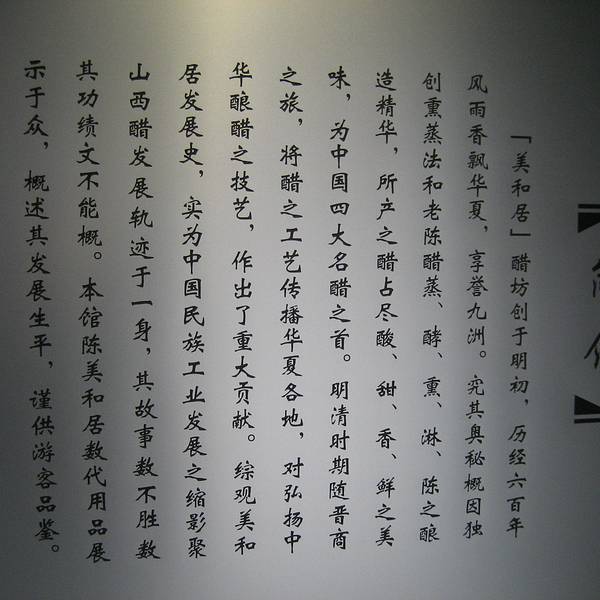 「美和居」醋坊创于明初，历经六百年
风雨香飘华夏，享誉九洲。究其奥秘概因独
创熏蒸法和老陈醋蒸、酵、熏、淋、陈之酿
造精华，所产之醋占尽酸、甜、香、鲜之美
味，为中国四大名醋之首。明清时期随晋商
之旅，将醋之工艺传播华夏各地，对弘扬中
华酿醋之技艺，作出了重大贡献。综观美和
居发展史，实为中国民族工业发展之缩影聚
山西醋发展轨迹于一身，其故事数不胜数
其功绩文不能概。本馆陈美和居数代用品展
示于众，概述其发展生平，谨供游客品鉴。